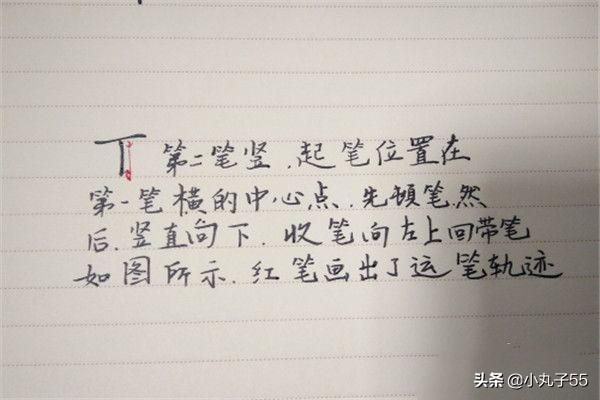 丅 第二笔竖.起笔位置在
第一笔横的中心点.先顿笔.然
后.竖直向下.收笔向左上回带笔
如图所示.红笔画出了运笔轨迹
头条 @小丸子55